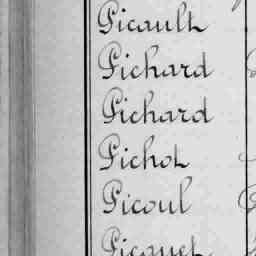 Picault
Pichard
Pichard
Pichot
Picoul
Picquet